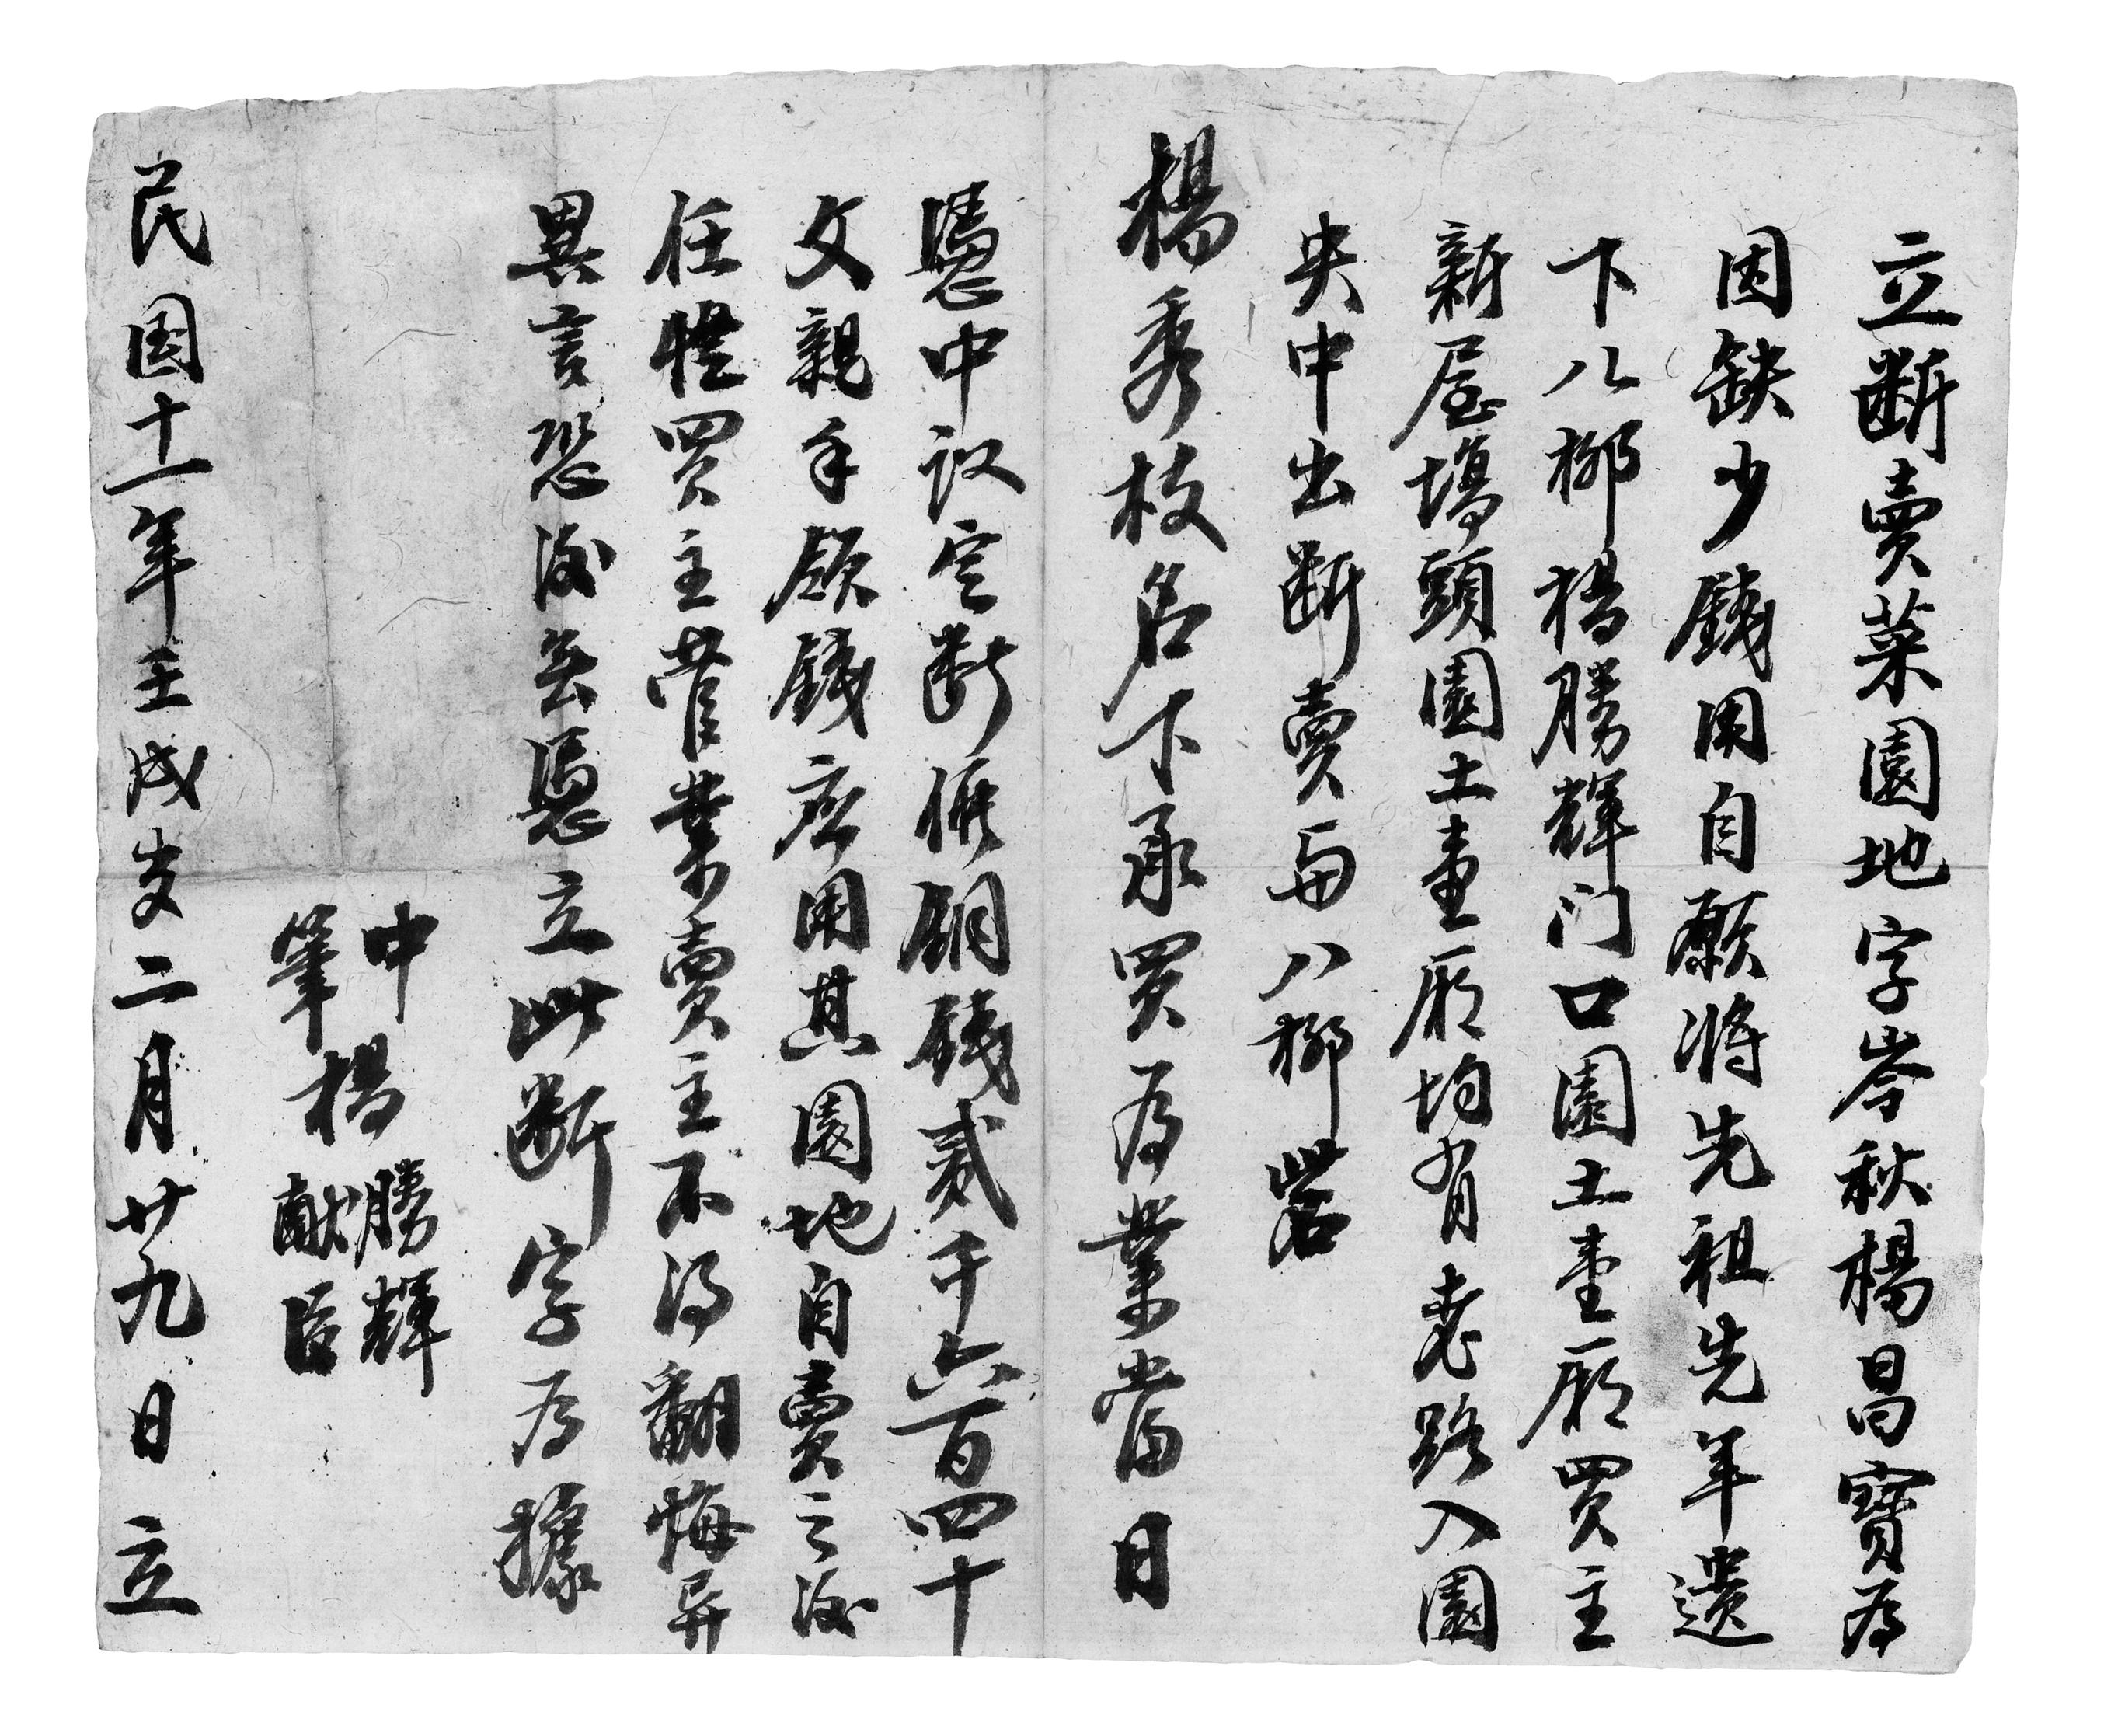 立斷賣菜園地字岑秋楊昌寶為
因缺少錢用自願將先祖先年遺
下八梛楊勝輝门口園土壹廂買主
新屋塲頭園土壹廂均有老路入園
央中出斷賣与八梛岩
楊秀枝名下承買為業當日
憑中议定断價銅錢貳千六百四十
文親手領錢應用其園地自賣之後
任憑買主管業賣主不得翻悔异
異言恐後無憑立此斷字為據
中 楊勝輝
筆 献臣
民国十一年壬戌歲二月廿九日立